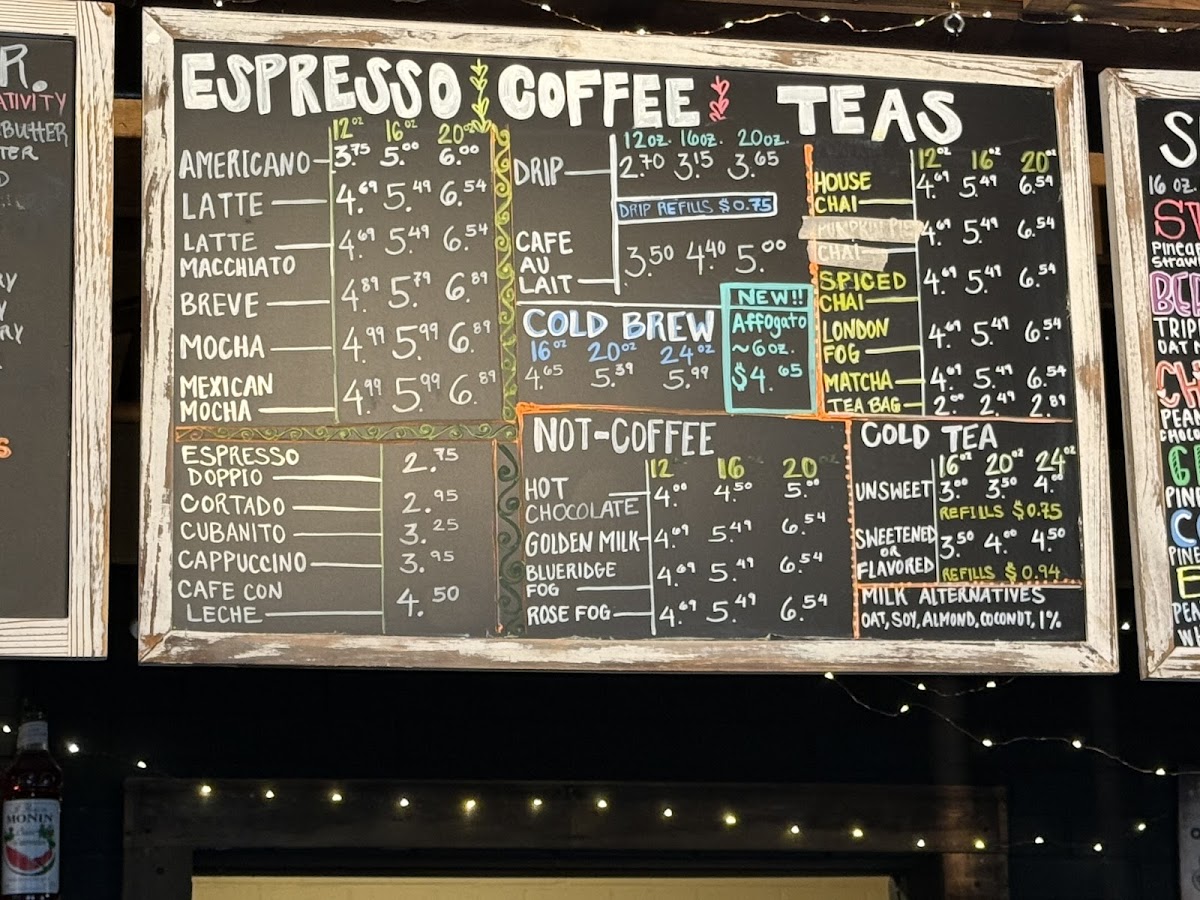 R.
ATIVITY
BUTTER
TER
D
RY
Y
RY
S
ESPRESSO COFFEE TEAS
12oz 16oz 20oz
AMERICANO 3.75 5.00 6.00
LATTE 4.69 5.49 6.54
LATTE
MACCHIATO 4.69 5.49 6.54
BREVE 4.89 5.79 6.89
MOCHA 4.99 5.99 6.89
MEXICAN
MOCHA 4.99 5.99 6.89
ESPRESSO
DOPPIO 2.75
CORTADO 2.95
CUBANITO 3.25
CAPPUCCINO 3.95
CAFE CON
LECHE 4.50
12oz. 16oz. 20oz.
DRIP 2.70 3.15 3.65
DRIP REFILLS $0.75
CAFE
AU
LAIT 3.50 4.40 5.00
COLD BREW
16oz 20oz 24oz
4.65 5.39 5.99
NEW!!
Affogato
~6oz.
$4.65
NOT-COFFEE
12oz 16oz 20oz
HOT
CHOCOLATE 4.00 4.50 5.00
GOLDEN MILK 4.69 5.49 6.54
BLUERIDGE
FOG 4.69 5.49 6.54
ROSE FOG 4.69 5.49 6.54
12oz 16oz 20oz
HOUSE
CHAI 4.69 5.49 6.54
PUMPKIN PIE
CHAI 4.69 5.49 6.54
SPICED
CHAI 4.69 5.49 6.54
LONDON
FOG 4.69 5.49 6.54
MATCHA 4.69 5.49 6.54
TEA BAG 2.00 2.49 2.89
COLD TEA
16oz 20oz 24oz
UNSWEET 3.00 3.50 4.00
REFILLS $0.75
SWEETENED
OR
FLAVORED 3.50 4.00 4.50
REFILLS $0.94
MILK ALTERNATIVES
OAT, SOY, ALMOND, COCONUT, 1%
S
16 OZ.
ST
PINEA
STRAW
BER
TRIP
OAT M
CH
PEAN
CHOC
G
PIN
C
PINE
E
PEA
W
MONIN